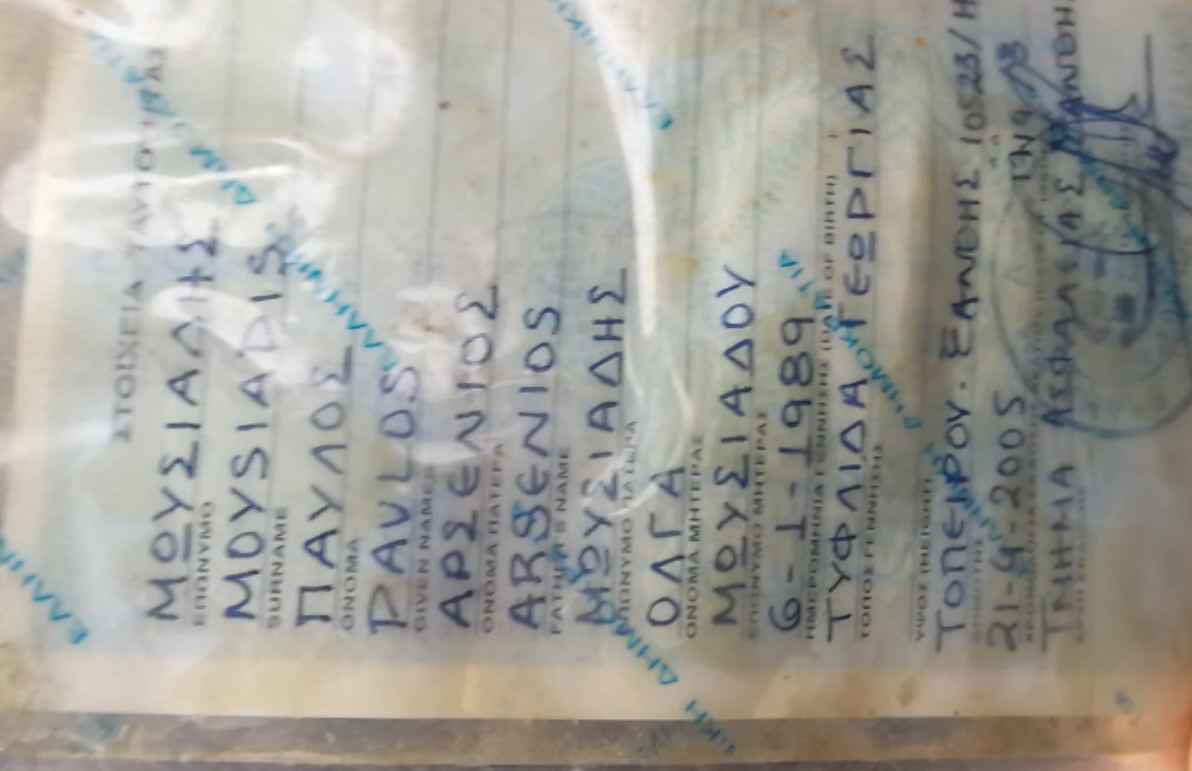 ΣΤΟΙΧΕΙΑ ΤΑΥΤΟΤΗΤΑΣ
ΜΩΥΣΙΑΔΗΣ
ΕΠΩΝΥΜΟ
MOYSIADIS
SURNAME
ΠΑΥΛΟΣ
ΟΝΟΜΑ
PAVLOS
GIVEN NAMES
ΑΡΣΕΝΙΟΣ
ΟΝΟΜΑ ΠΑΤΕΡΑ
ARSENIOS
FATHER'S NAME
ΜΩΥΣΙΑΔΗΣ
ΕΠΩΝΥΜΟ ΠΑΤΕΡΑ
ΟΛΓΑ
ΟΝΟΜΑ ΜΗΤΕΡΑΣ
ΜΩΥΣΙΑΔΟΥ
ΕΠΩΝΥΜΟ ΜΗΤΕΡΑΣ
6-1-1989
ΗΜΕΡΟΜΗΝΙΑ ΓΕΝΝΗΣΗΣ (DATE OF BIRTH)
ΤΥΦΛΙΔΑ ΓΕΩΡΓΙΑΣ
ΤΟΠΟΣ ΓΕΝΝΗΣΗΣ
ΥΨΟΣ (HEIGHT)
ΤΟΠΕΙΡΟΥ. ΞΑΝΘΗΣ 10523/
21-4-2005
ΤΜΗΜΑ ΑΣΦΑΛΕΙΑΣ ΞΑΝΘΗΣ